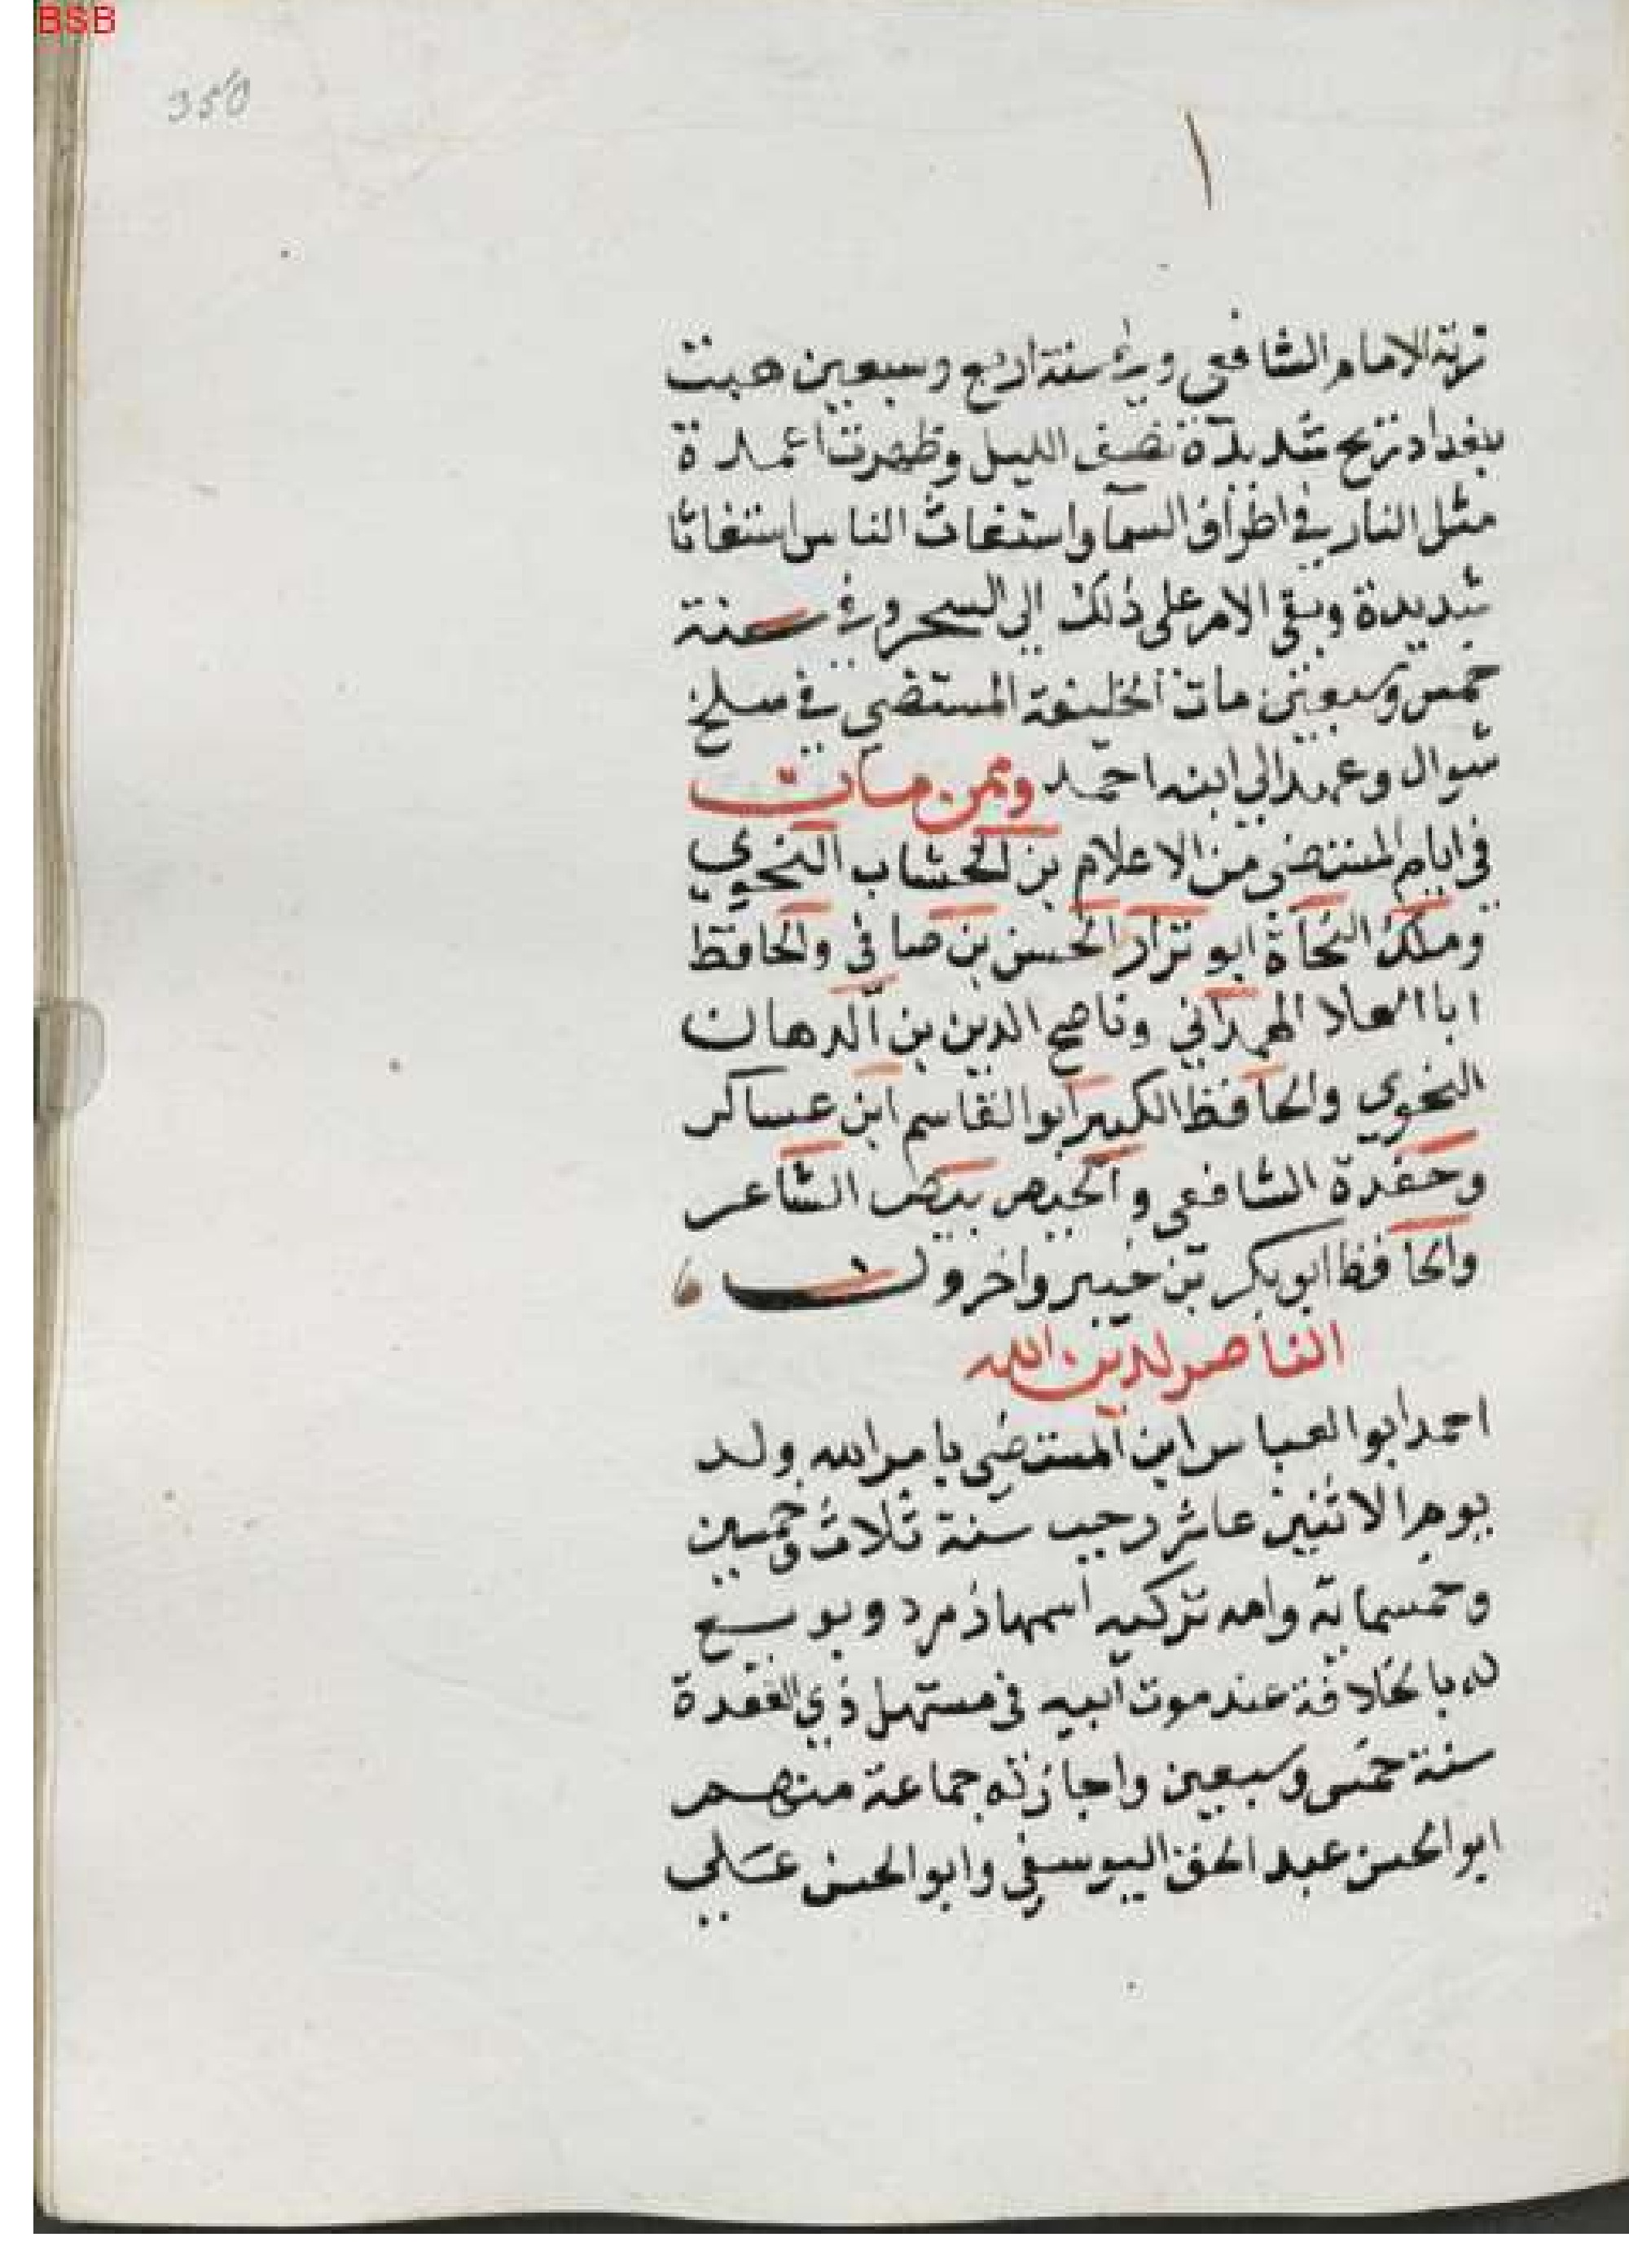 BSB
350
١
تربة الامام الشافعي وفي سنة اربع وسبعين هبت
ببغداد ريح شديدة نصف الليل وظهرت اعمدة
مثل النار في اطراف السما واستغاث الناس استغاثا
شديدة وبقي الامر على ذلك الي السحر وفي سنة
خمس وسبعين مات الخليفة المستضي في سلخ
شوال وعهد الي ابنه احمد وممن مات
في ايام المستضي من الاعلام بن الخشاب النحوي
وملك النحاة ابو نزار الحسن بن صافي والحافظ
ابا العلا الهمداني وناصح الدين بن الدهان
النحوي والحافظ الكبير ابو القاسم ابن عساكر
وحفدة الشافعي والحيص بيص الشاعر
والحافظ ابو بكر بن خير واخرون
الناصر لدين الله
احمد ابو العباس ابن المستضي بامر الله ولد
يوم الاثنين عاشر رجب سنة ثلاث وخمسين
وخمسماية وامه تركيه اسمها زمرد وبويع
له بالخلافة عند موت ابيه في مستهل ذي القعدة
سنة خمس وسبعين واجاز له جماعة منهم
ابو الحسن عبد الحق اليوسفي وابو الحسن علي